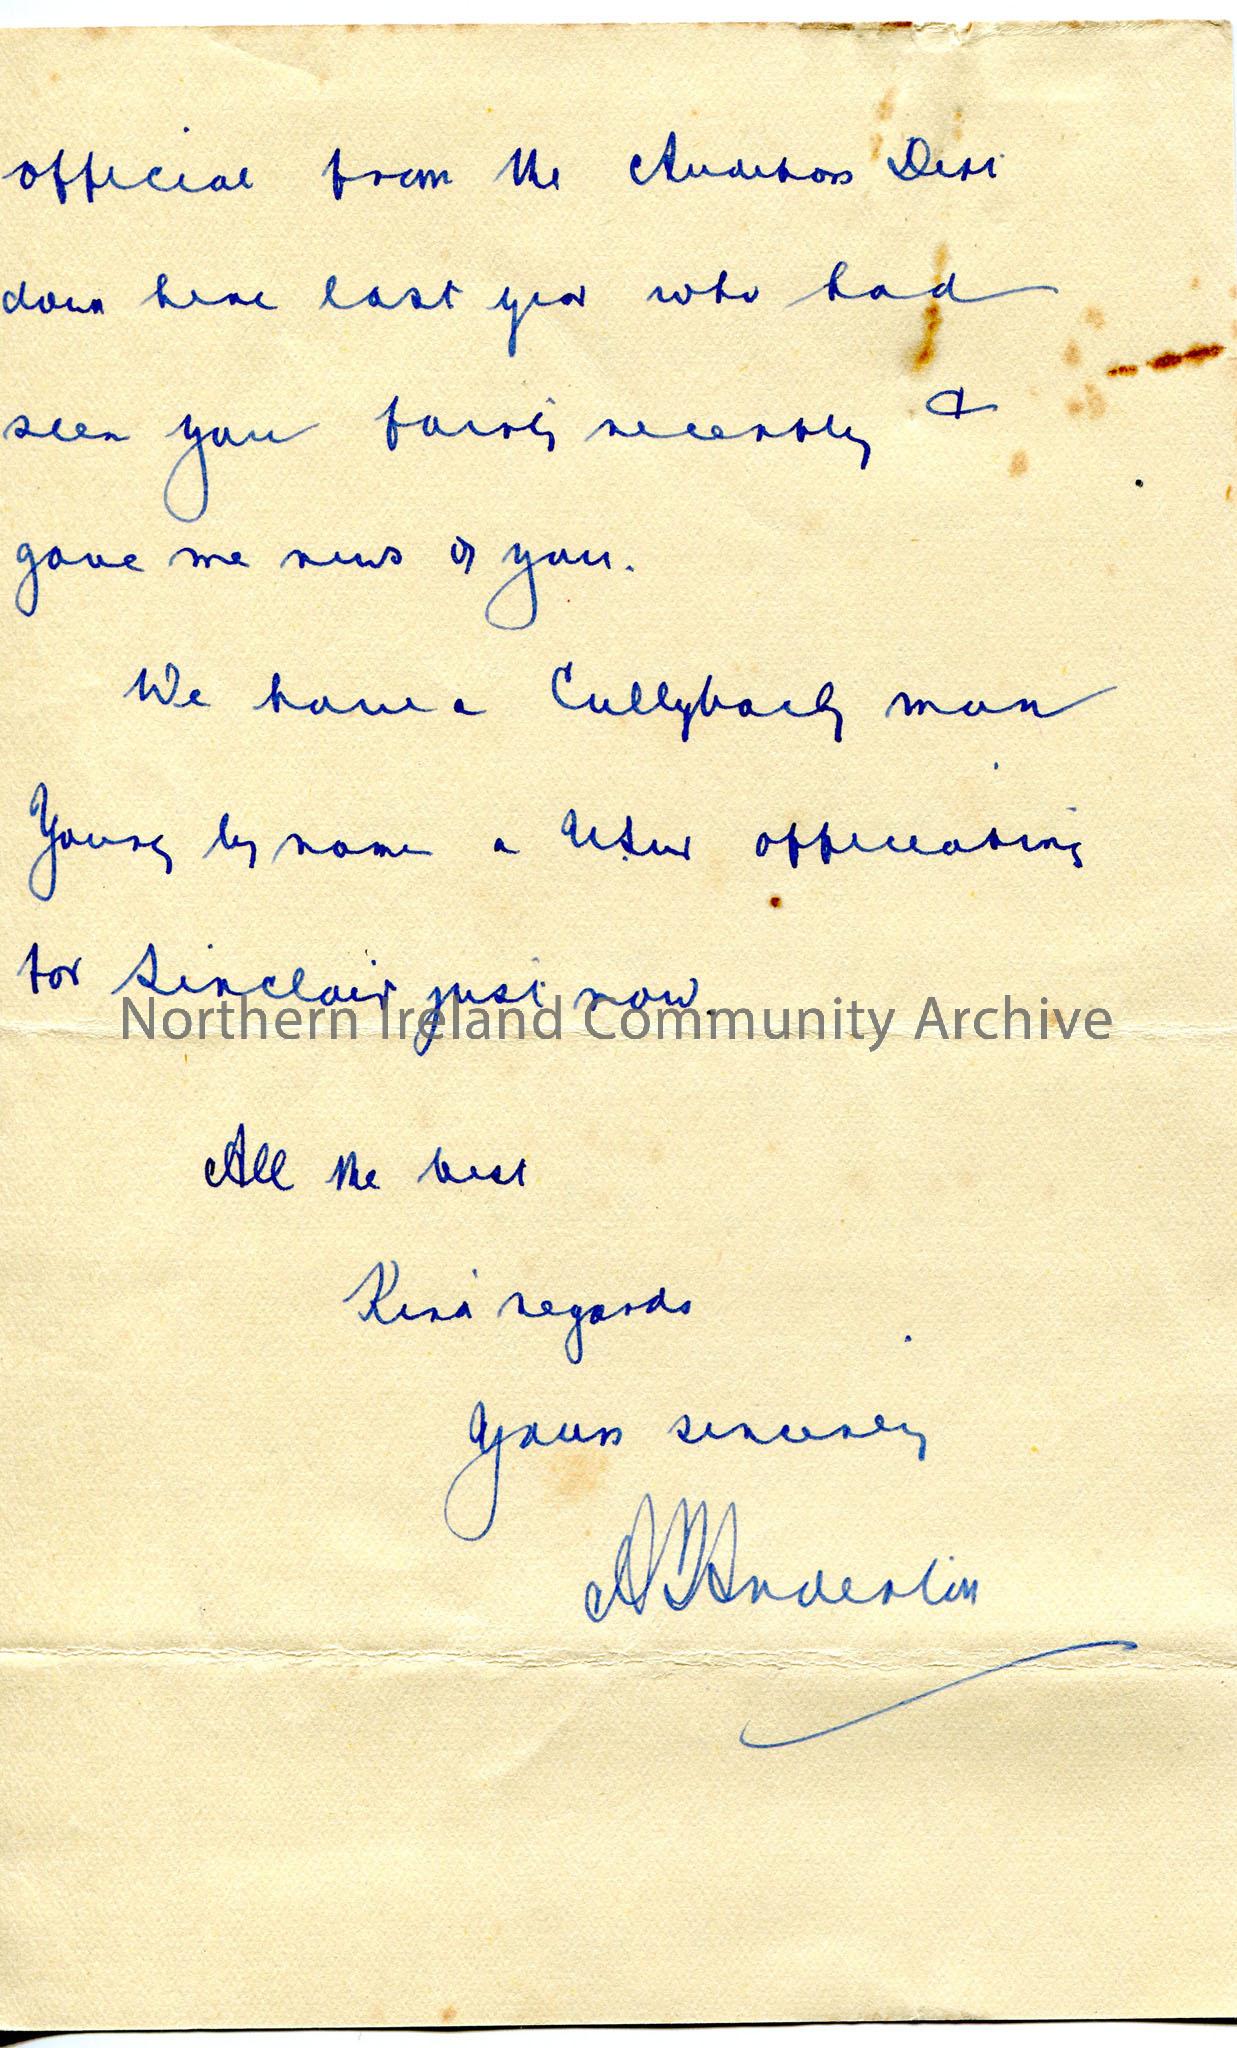 official from the Auditors Dept
down here last year who had
seen you fairly recently &
gave me news of you.
We have a Cullybacky man
Young by name a officiating
for Sinclair just now.
Northern Ireland Community Archive
All the best
Kind regards
Yours sincerely